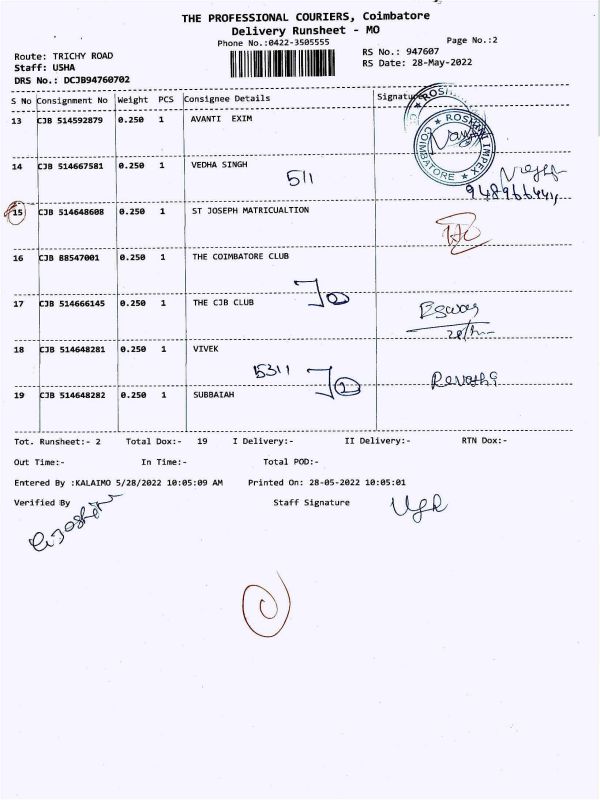 THE PROFESSIONAL COURIERS, Coimbatore
Delivery Runsheet - MO
Phone No.:0422-3505555
Page No.:2
Route: TRICHY ROAD
RS No.: 947607
Staff: USHA
RS Date: 28-May-2022
DRS No.: DCJB94760702
S No Consignment No Weight PCS Consignee Details Signature
13 CJB 514592879 0.250 1 AVANTI EXIM
ROSHINI IMPEX
COIMBATORE
14 CJB 514667581 0.250 1 VEDHA SINGH
511
15 CJB 514648608 0.250 1 ST JOSEPH MATRICUALTION
16 CJB 88547001 0.250 1 THE COIMBATORE CLUB
17 CJB 514666145 0.250 1 THE CJB CLUB
18 CJB 514648281 0.250 1 VIVEK
5311
Revathi
19 CJB 514648282 0.250 1 SUBBAIAH
Tot. Runsheet:- 2 Total Dox:- 19 I Delivery:- II Delivery:- RTN Dox:-
Out Time:- In Time:- Total POD:-
Entered By :KALAIMO 5/28/2022 10:05:09 AM Printed On: 28-05-2022 10:05:01
Verified By Staff Signature